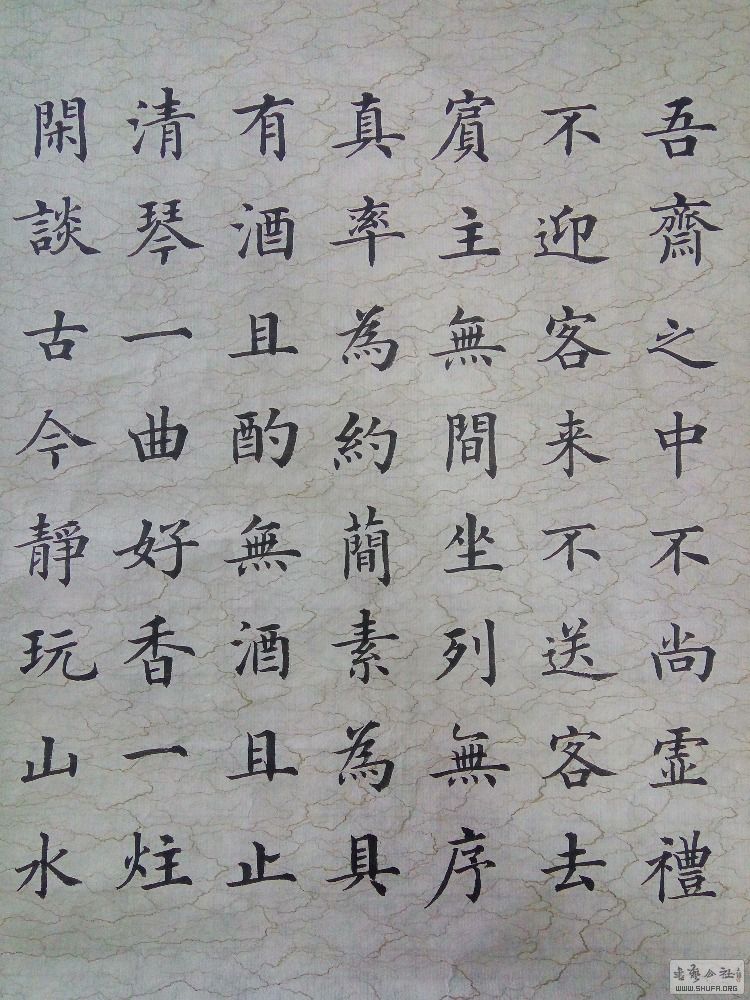 吾齋之中不尚虛禮
不迎客来不送客去
賓主無間坐列無序
真率為約簡素為具
有酒且酌無酒且止
清琴一曲好香一炷
閑談古今靜玩山水
WWW.SHUFA.ORG